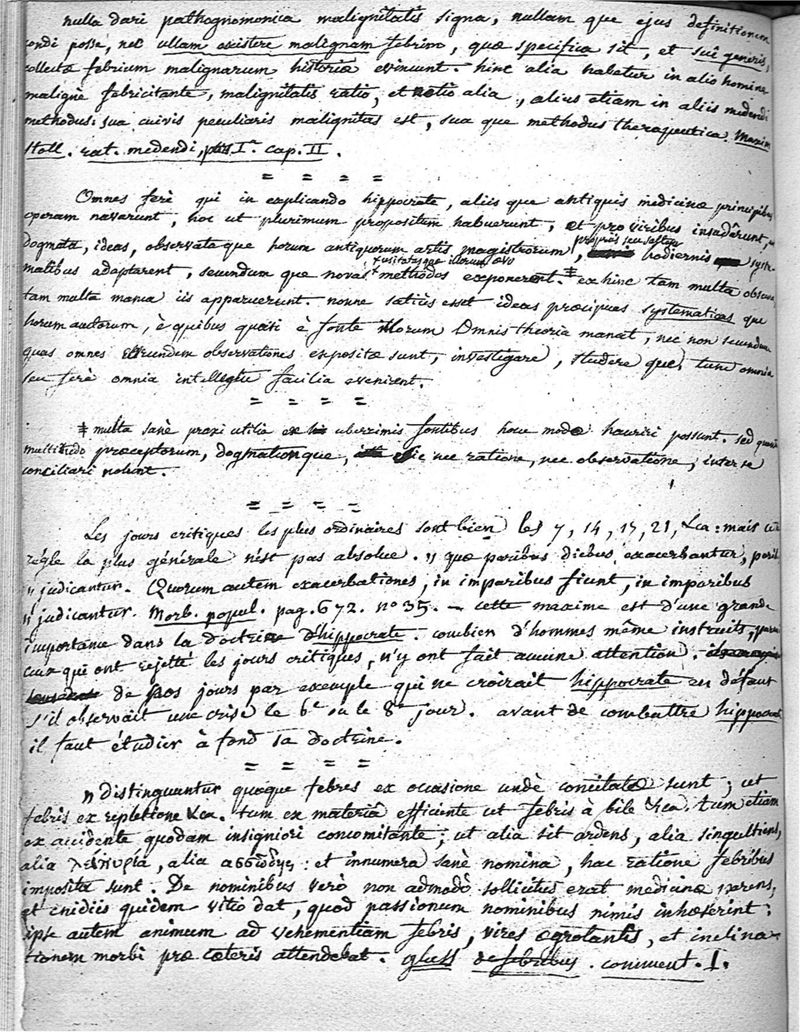 nulla dari pathognomonica malignitatis signa, nullam que ejus definitionem
condi posse, nec ullam existere malignam febrim, quæ specifica sit, et sui generis,
collectæ febrium malignarum historiæ evincunt. hinc alia habetur in alio homine
maligne febricitante, malignitatis ratio, et ratio alia, alius etiam in aliis medendi
methodus: sua cuivis peculiaris malignitas est, sua que methodus therapeutica. Maxim
Stoll. rat. medendi, Iª. cap. II.
= = = =
Omnes ferè qui in explicando hippocrate, aliis que antiquis medicinæ principibus
operam navarunt, hoc ut plurimum propositum habuerunt, et pro viribus insudârunt, ut
dogmata, ideas, observata que horum antiquorum artis magistrorum, propriis seu saltem hodiernis syste-
matibus adaptarent, secundum que novas + usitatasque illorum ævo methodos exponerent. ‡ ex hinc tam multa obscura
tam multa manca iis apparuerunt. nonne satiùs esset ideas præcipuas systematicas que
horum auctorum, è quibus quasi è fonte illorum omnis theoria manat, nec non secundum
quas omnes eorundem observationes expositæ sunt, investigare, studere que, tunc omnia
seu ferè omnia intellectu facilia evenirent.
= = = =
‡ multa sanè praxi utilia uberrimis fontibus hocce modo hauriri possunt. sed quoad
multitudo præceptorum, dogmationque, sic nec ratione, nec observatione, inter se
conciliari nolunt.
= = = =
Les jours critiques les plus ordinaires sont bien les 7, 14, 17, 21, &ca: mais cette
régle la plus générale n'est pas absolue. " quæ paribus diebus exacerbantur, paribus
" judicantur. Quorum autem exacerbationes, in imparibus fiunt, in imparibus
" judicantur. Morb. popul. pag. 672. n° 35. — cette maxime est d'une grande
importance dans la doctrine d'hippocrate. combien d'hommes même instruits, parmi
ceux qui ont rejetté les jours critiques, n'y ont fait aucune attention.
de nos jours par exemple qui ne croirait hippocrate en défaut
s'il observait une crise le 6e ou le 8e jour. avant de combattre hippocrate
il faut étudier à fond sa doctrine.
= = = =
" distinguuntur quoque febres ex occasione undè concitatæ sunt; ut
febris ex repletione &ca. tum ex materiâ efficiente ut febris à bile &ca. tum etiam
ex accidente quodam insigniori concomitante; ut alia sit ardens, alia singultiens,
alia λειπυρία, alia ασσώδης: et innumera sanè nomina, hac ratione febribus
imposita sunt. De nominibus verò non admodò sollicitus erat medicinæ parens,
et cnidiis quidem vitio dat, quod passionum nominibus nimis inhæserint;
ipse autem animum ad vehementiam febris, vires ægrotantis, et inclina-
tionem morbi præ cæteris attendebat. glass de febribus. comment. I.